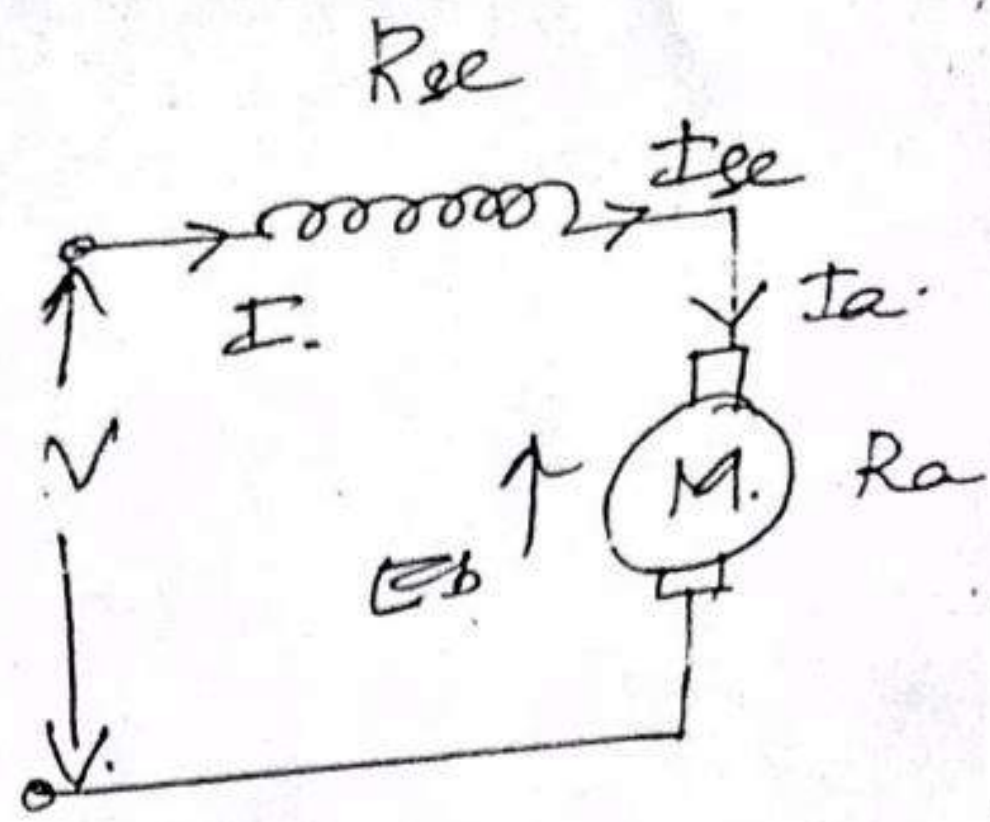 Rse
Ise
I.
Ia.
V
M.
Ra
Eb